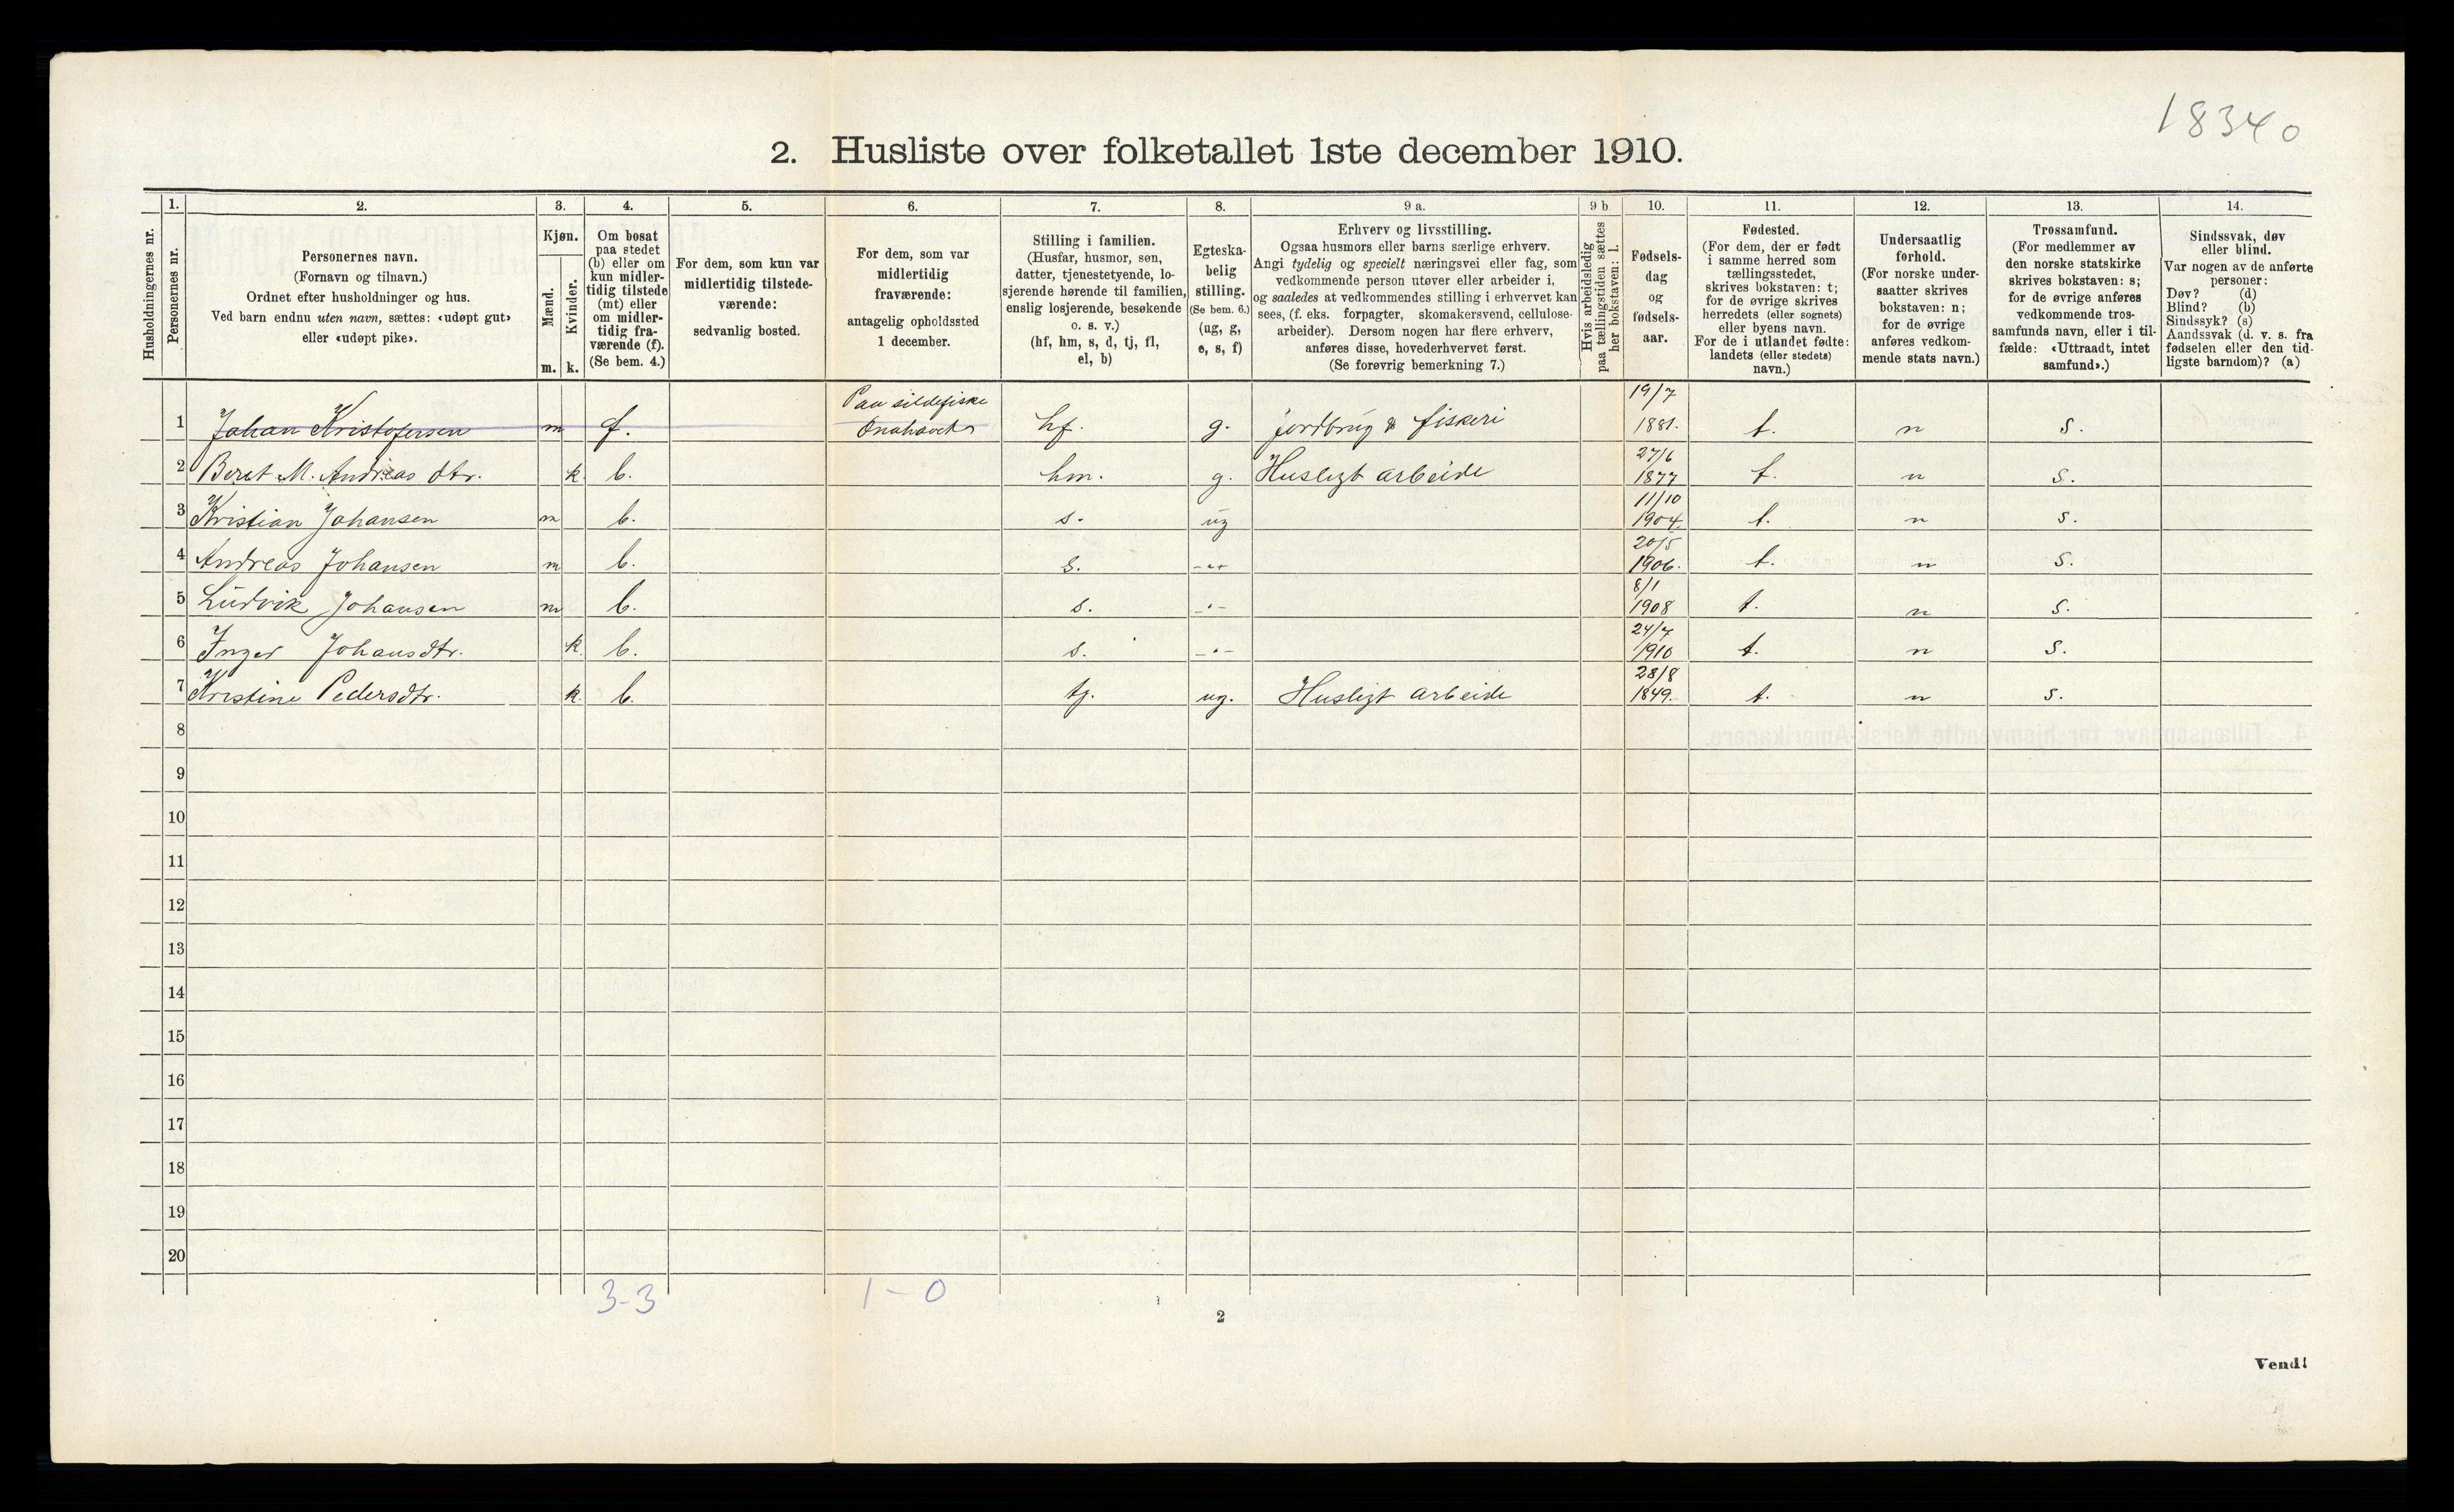 18340
2. Husliste over folketallet 1ste december 1910.
Husholdningernes nr.
1.
Personernes nr.
2.
Personernes navn.
(Fornavn og tilnavn.)
Ordnet efter husholdninger og hus.
Ved barn endnu uten navn, sættes: «udøpt gut»
eller «udøpt pike».
3.
Kjøn.
Mænd.
Kvinder.
m. k.
4.
Om bosat
paa stedet
(b) eller om
kun midler-
tidig tilstede
(mt) eller
om midler-
tidig fra-
værende (f).
(Se bem. 4.)
5.
For dem, som kun var
midlertidig tilstede-
værende:
sedvanlig bosted.
6.
For dem, som var
midlertidig
fraværende:
antagelig opholdssted
1 december.
7.
Stilling i familien.
(Husfar, husmor, søn,
datter, tjenestetyende, lo-
sjerende hørende til familien,
enslig losjerende, besøkende
o. s. v.)
(hf, hm, s, d, tj, fl,
el, b)
8.
Egteska-
belig
stilling.
(Se bem. 6.)
(ug, g,
e, s, f)
9 a.
Erhverv og livsstilling.
Ogsaa husmors eller barns særlige erhverv.
Angi tydelig og specielt næringsvei eller fag, som
vedkommende person utøver eller arbeider i,
og saaledes at vedkommendes stilling i erhvervet kan
sees, (f. eks. forpagter, skomakersvend, cellulose-
arbeider). Dersom nogen har flere erhverv,
anføres disse, hovederhvervet først.
(Se forøvrig bemerkning 7.)
9 b
Hvis arbeidsledig
paa tællingstiden sættes
her bokstaven: l.
10.
Fødsels-
dag
og
fødsels-
aar.
11.
Fødested.
(For dem, der er født
i samme herred som
tællingsstedet,
skrives bokstaven: t;
for de øvrige skrives
herredets (eller sognets)
eller byens navn.
For de i utlandet fødte:
landets (eller stedets)
navn.)
12.
Undersaatlig
forhold.
(For norske under-
saatter skrives
bokstaven: n;
for de øvrige
anføres vedkom-
mende stats navn.)
13.
Trossamfund.
(For medlemmer av
den norske statskirke
skrives bokstaven: s;
for de øvrige anføres
vedkommende tros-
samfunds navn, eller i til-
fælde: «Uttraadt, intet
samfund».)
14.
Sindssvak, døv
eller blind.
Var nogen av de anførte
personer:
Døv? (d)
Blind? (b)
Sindssyk? (s)
Aandssvak (d. v. s. fra
fødselen eller den tid-
ligste barndom)? (a)
1 Johan Kristofersen m f. Paa sildefiske hf. g. jordbrug & fiskeri 19/7 1881. t. n s.
2 Beret M. Andreasdtr. k. b. hm. g. Husligt arbeide 27/6 1877 t. n s.
3 Kristian Johansen m b. s. ug 11/10 1904. t. n s.
4 Andreas Johansen m b. s. -"- 20/5 1906. t. n s.
5 Ludvik Johansen m b. s. -"- 8/1 1908 t. n s.
6 Inger Johansdtr. k. b. s. -"- 24/7 1910 t. n s.
7 Kristine Pedersdtr. k. b. tj. ug. Husligt arbeide 28/8 1849. t. n s.
8
9
10
11
12
13
14
15
16
17
18
19
20
3-3 1-0
2
Vend!